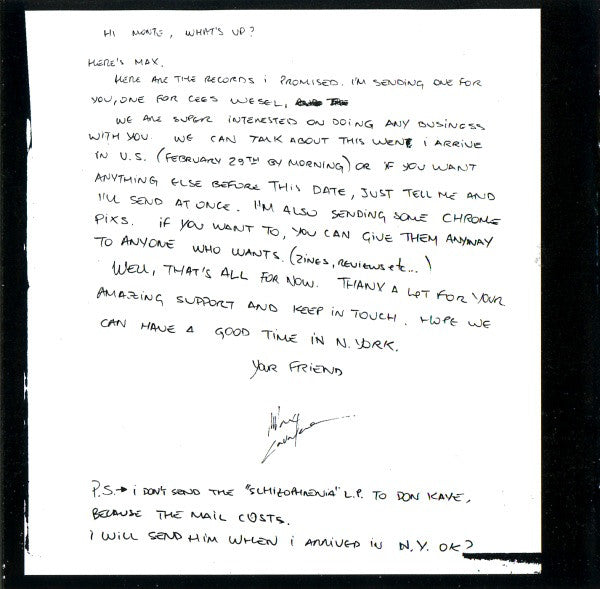 HI MONTE, WHAT'S UP?
HERE'S MAX.
HERE ARE THE RECORDS I PROMISED. I'M SENDING ONE FOR
YOU, ONE FOR CEES WESEL,
WE ARE SUPER INTERESTED ON DOING ANY BUSINESS
WITH YOU. WE CAN TALK ABOUT THIS WEN I ARRIVE
IN U.S. (FEBRUARY 29TH BY MORNING) OR IF YOU WANT
ANYTHING ELSE BEFORE THIS DATE, JUST TELL ME AND
I'LL SEND AT ONCE. I'M ALSO SENDING SOME CHROME
PIXS. IF YOU WANT TO, YOU CAN GIVE THEM ANYWAY
TO ANYONE WHO WANTS. (ZINES, REVIEWS etc...)
WELL, THAT'S ALL FOR NOW. THANX A LOT FOR YOUR
AMAZING SUPPORT AND KEEP IN TOUCH. HOPE WE
CAN HAVE A GOOD TIME IN N. YORK.
YOUR FRIEND
P.S.→ I DON'T SEND THE "SCHIZOPHRENIA" L.P. TO DON KAYE,
BECAUSE THE MAIL COSTS.
I WILL SEND HIM WHEN I ARRIVED IN N.Y. OK?